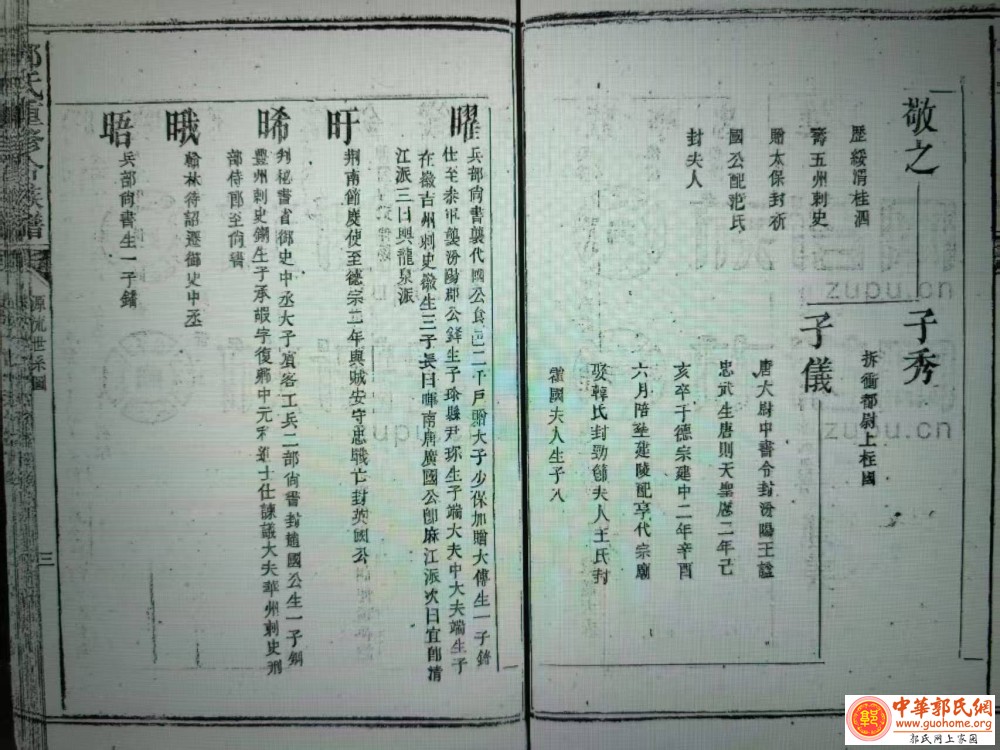 敬之
歷綏渭桂泗
壽五州刺史
贈太保封祈
國公配范氏
封夫人
子秀
拆衝都尉上柱國
子儀
唐大尉中書令封汾陽王謚
忠武生唐則天聖曆二年己
亥卒于德宗建中二年辛酉
六月陪塟建陵配享代宗廟
娶韓氏封勁節夫人王氏封
霍國夫人生子八
曜
兵部尙書襲代國公食邑二千戸贈大子少保加贈大傅生一子鋒
仕至叅軍襲汾陽郡公鋒生子珍縣尹珎生子端大夫中大夫端生子
在徽吉州刺史徽生三子長曰暉南唐廣國公卽麻江派次曰宜卽淸
江派三曰興龍泉派
旴
荆南節度使至德宗二年與賊安守忠戰亡封英國公
晞
判秘書省御史中丞大子賓客工兵二部尙書封趙國公生一子鋼
豐州刺史鋼生子承嘏字復郷中元和進士仕諫議大夫華州刺史刑
部侍郎至尙書
㬂
翰林待詔遷御史中丞
晤
兵部尙書生一子鐇
郭氏重修合族譜
源流世系圖
三
zupu.cn
zupu.cn
中華郭氏網
www.guohome.org
郭氏网上家園